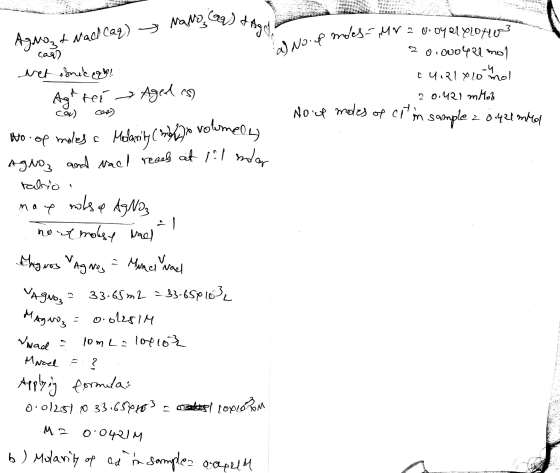 AgNO3 + NaCl(aq) → NaNO3(aq) + AgCl
(aq)
Net ionic eqn:
Ag+ + Cl- → AgCl (s)
(aq) (aq)
No. of moles = Molarity (mol/L) × volume(L)
AgNO3 and NaCl react at 1:1 molar
ratio.
no of mols of AgNO3 / no. of mols of NaCl = 1
MAgNO3 VAgNO3 = MNaCl VNaCl
VAgNO3 = 33.65 mL = 33.65×10-3 L
MAgNO3 = 0.01251M
VNaCl = 10 mL = 10×10-3 L
MNaCl = ?
Applying formula:
0.01251 × 33.65×10-3 = 10×10-3×M
M = 0.0421M
b) Molarity of Cl- in sample = 0.0421M
a) No. of moles = MV = 0.0421×10×10-3
= 0.000421 mol
= 4.21 × 10-4 mol
= 0.421 mmol
No. of moles of Cl- in sample = 0.421 mmol